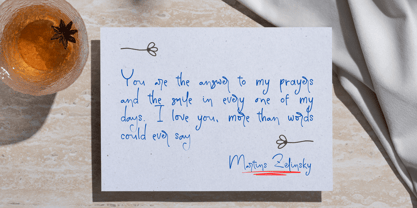 You are the answer to my prayers
and the smile in every one of my
days. I love you, more than words
could ever say
Martins Zelinsky